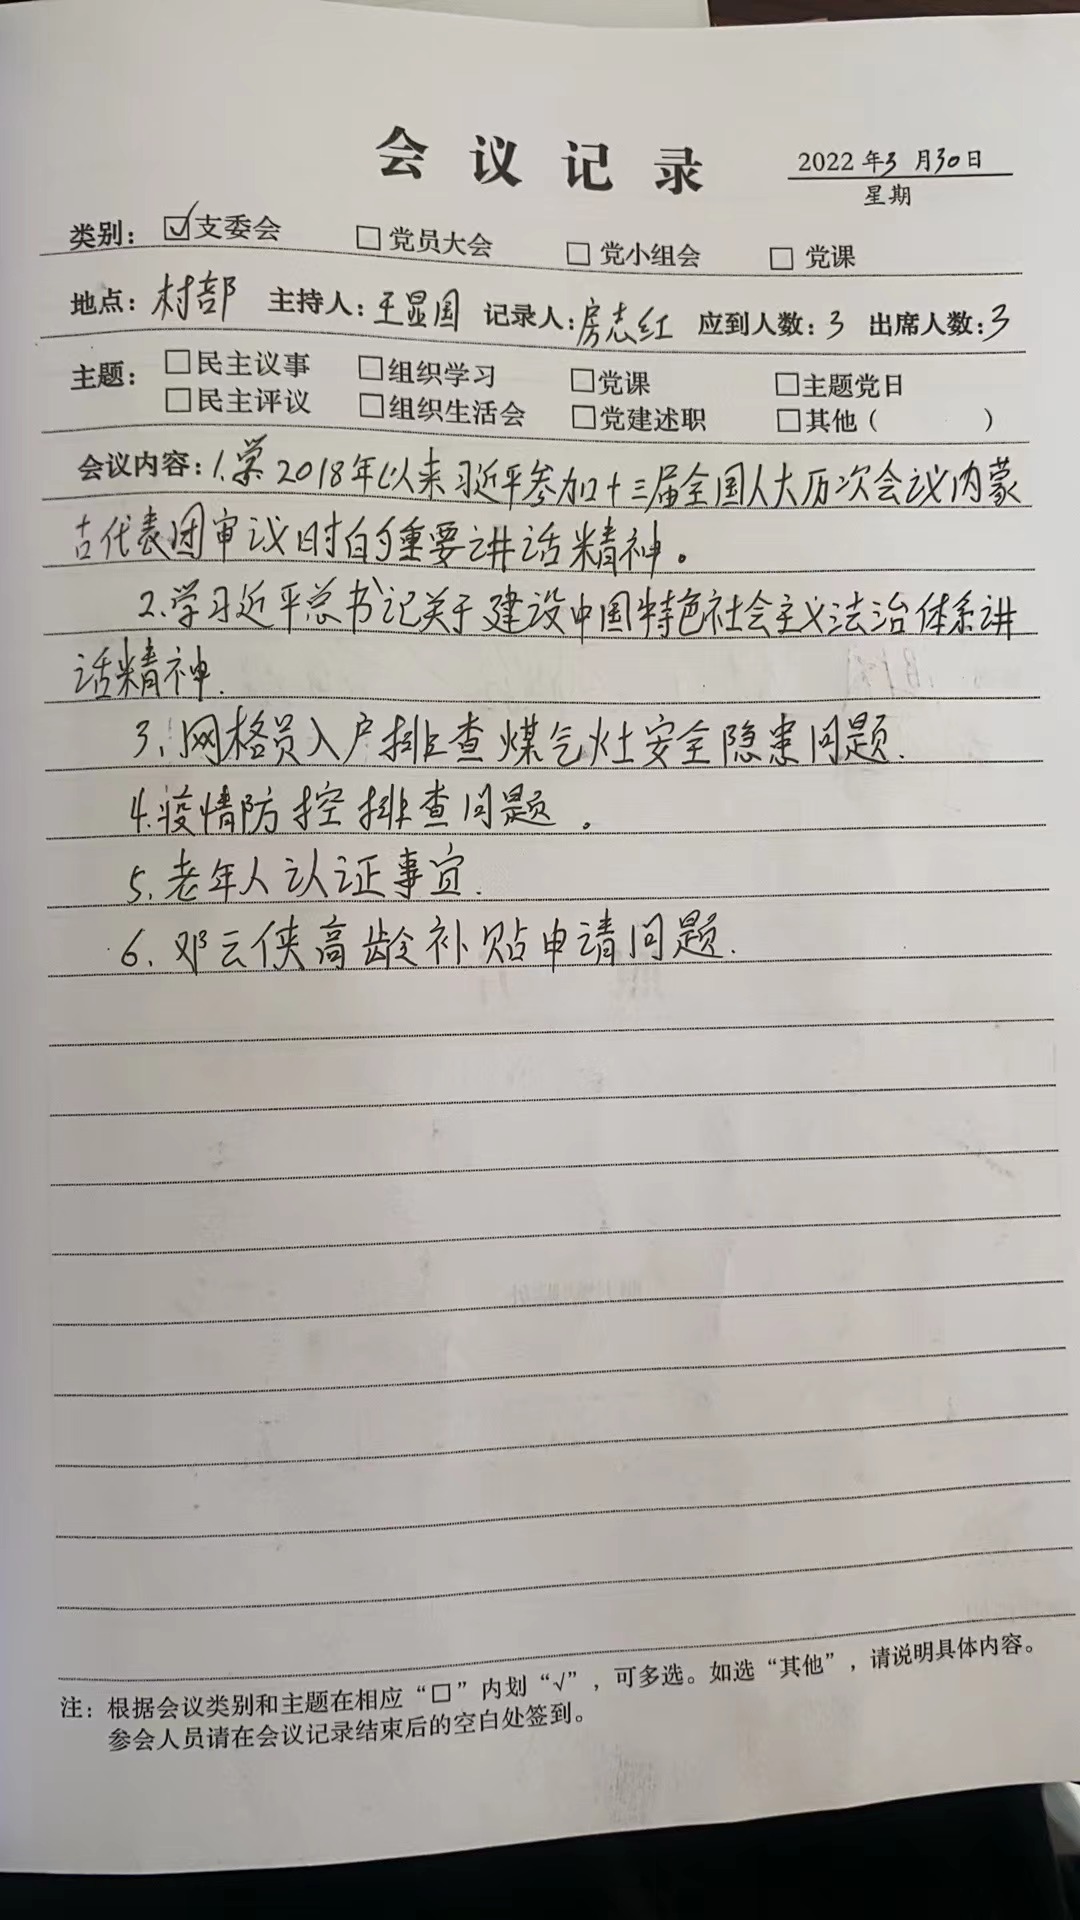 会议记录
2022年3月30日
星期
类别：☑支委会 □党员大会 □党小组会 □党课
地点：村部 主持人：王显国 记录人：房志红 应到人数：3 出席人数：3
主题：□民主议事 □组织学习 □党课 □主题党日
□民主评议 □组织生活会 □党建述职 □其他（ ）
会议内容：1.学2018年以来习近平参加十三届全国人大历次会议内蒙
古代表团审议时的重要讲话精神。
2.学习近平总书记关于建设中国特色社会主义法治体系讲
话精神.
3、网格员入户排查煤气灶安全隐患问题.
4.疫情防控排查问题。
5、老年人认证事宜.
6、邓云侠高龄补贴申请问题.
注：根据会议类别和主题在相应“□”内划“√”，可多选。如选“其他”，请说明具体内容。
参会人员请在会议记录结束后的空白处签到。